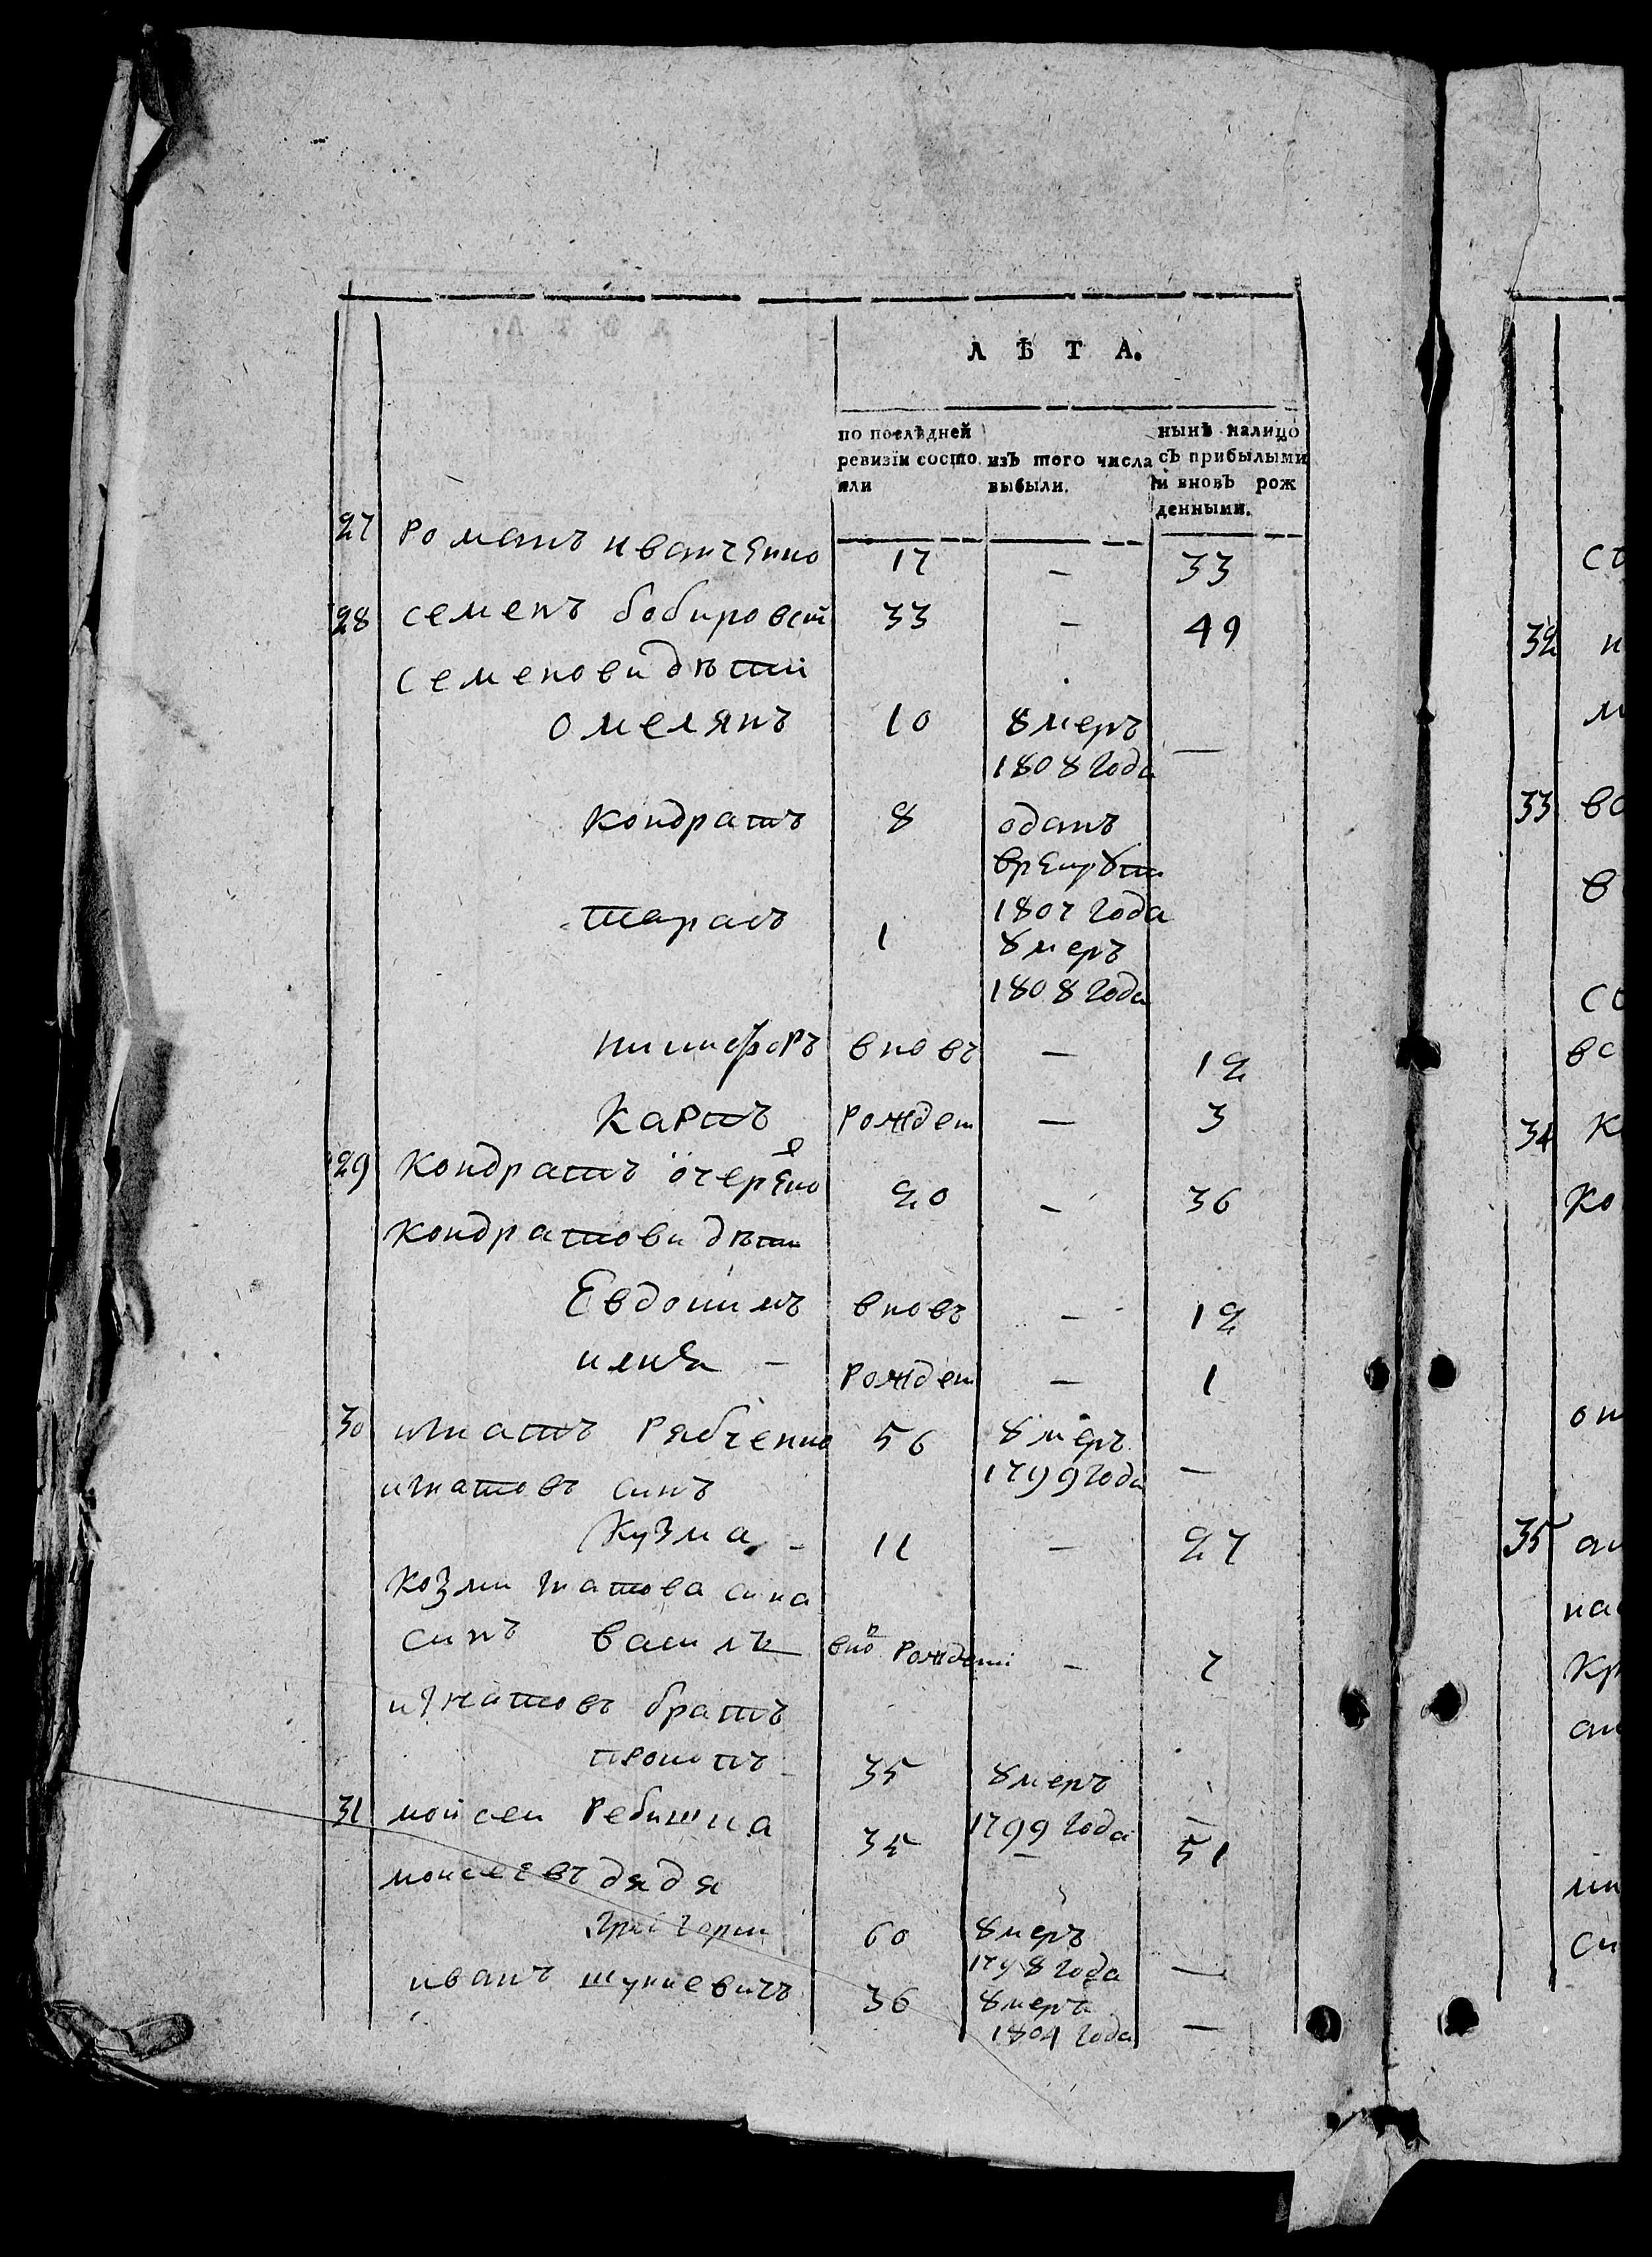 ЛѢТА.
по послѣдней ревизіи состояли
изъ того числа выбыли.
нынѣ налицо съ прибылыми и вновь рожденными.
27 романъ иванченко 17 — 33
28 семенъ бобировст 33 — 49
семенови дѣти
омелянъ 10 умеръ —
1808 года
кондратъ 8 оданъ
врекруты
1807 года
тарасъ 1 умеръ
1808 года
никифоръ вновъ — 12
карпъ рожден — 3
29 кондратъ очеред 20 — 36
кондратови дѣти
Евдокимъ вновъ — 12
илия — рожден — 1
30 игнатъ рябченко 56 умеръ
1799 года —
игнатовъ синъ
кузма — 11 — 27
козми гнатова сина
синъ василъ вно рождени — 7
игнатовъ братъ
прокопъ 35 умеръ
1799 года —
31 мойсеи ребишка 35 — 51
моисеевъ дядя
григории 60 умеръ
1798 года —
иванъ шункевичъ 36 умеръ
1804 года —
32
33
34
35